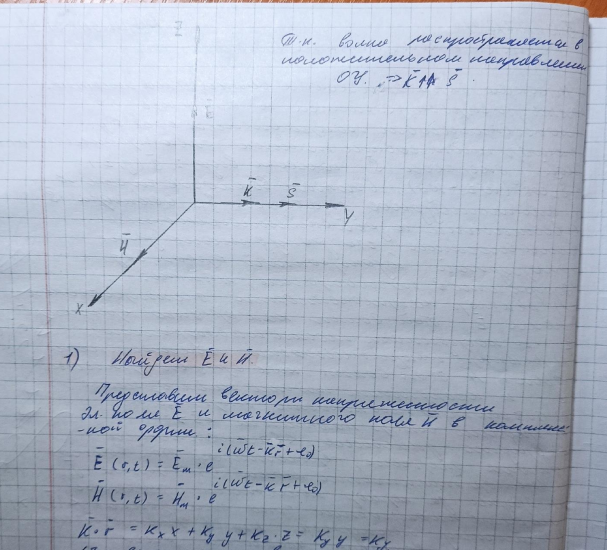 Z
Т.к. волна распространяется в
положительном направлении
OY. => K̄ ↑↑ S̄.
Ē
K̄ S̄
Y
H̄
X
1) Найдем Ē и H̄.
Представим вектори напряженности
Эл. поля Ē и магнитного поля H̄ в комплекс
-ной форме:
Ē(r,t) = Ēₘ · e^i(w̄t - K̄r̄ + φ₀)
H̄(r,t) = H̄ₘ · e^i(w̄t - K̄r̄ + φ₀)
K̄ · r̄ = Kₓ x + Kᵧ y + K_z · z = Kᵧ y = Ky